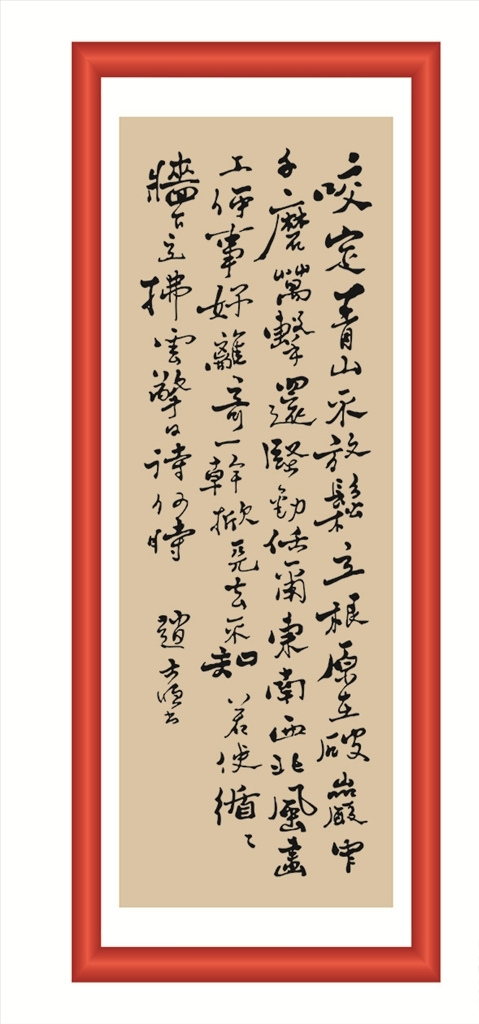 咬定青山不放鬆立根原在破巖中
千磨萬擊還堅勁任爾東南西北風畫
工何事好離奇一幹掀天去不知若使循〻
牆下立拂雲擎日待何時
趙士書